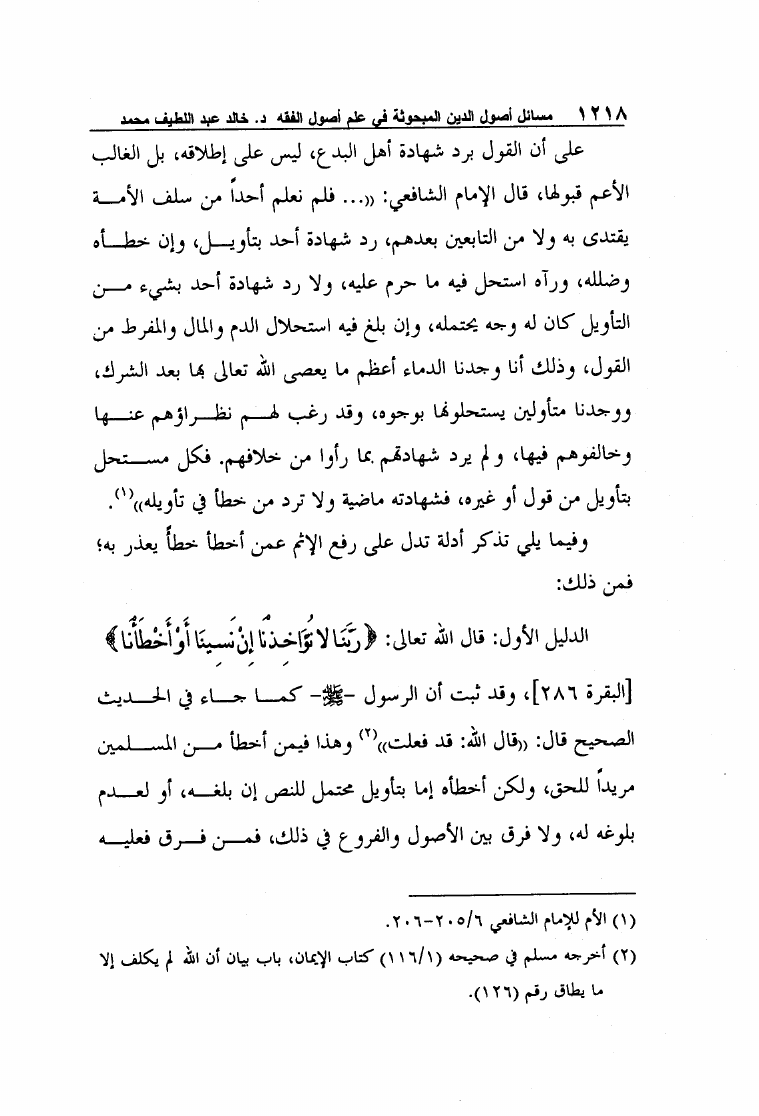 ١٢١٨ مسائل أصول الدين المبحوثة في علم أصول الفقه د. خالد عبد اللطيف محمد
على أن القول برد شهادة أهل البدع، ليس على إطلاقه، بل الغالب
الأعم قبولها، قال الإمام الشافعي: ((... فلم نعلم أحداً من سلف الأمــة
يقتدى به ولا من التابعين بعدهم، رد شهادة أحد بتأويــل، وإن خطــأه
وضلله، ورآه استحل فيه ما حرم عليه، ولا رد شهادة أحد بشيء مــن
التأويل كان له وجه يحتمله، وإن بلغ فيه استحلال الدم والمال والمفرط من
القول، وذلك أنا وجدنا الدماء أعظم ما يعصى الله تعالى بها بعد الشرك،
ووجدنا متأولين يستحلونها بوجوه، وقد رغب لهــم نظــراؤهم عنــها
وخالفوهم فيها، ولم يرد شهادتهم بما رأوا من خلافهم. فكل مســتحل
بتأويل من قول أو غيره، فشهادته ماضية ولا ترد من خطأ في تأويله))(١).
وفيما يلي تذكر أدلة تدل على رفع الإثم عمن أخطأ خطأً يعذر به؛
فمن ذلك:
الدليل الأول: قال الله تعالى: ﴿رَبَّنَا لَا تُؤَاخِذْنَا إِنْ نَسِينَا أَوْ أَخْطَأْنَا﴾
[البقرة ٢٨٦]، وقد ثبت أن الرسول -ﷺ- كمــا جــاء في الحــديث
الصحيح قال: ((قال الله: قد فعلت))(٢) وهذا فيمن أخطأ مــن المســلمين
مريداً للحق، ولكن أخطأه إما بتأويل محتمل للنص إن بلغــه، أو لعــدم
بلوغه له، ولا فرق بين الأصول والفروع في ذلك، فمــن فــرق فعليــه
(١) الأم للإمام الشافعي ٢٠٥/٦-٢٠٦.
(٢) أخرجه مسلم في صحيحه (١١٦/١) كتاب الإيمان، باب بيان أن الله لم يكلف إلا
ما يطاق رقم (١٢٦).